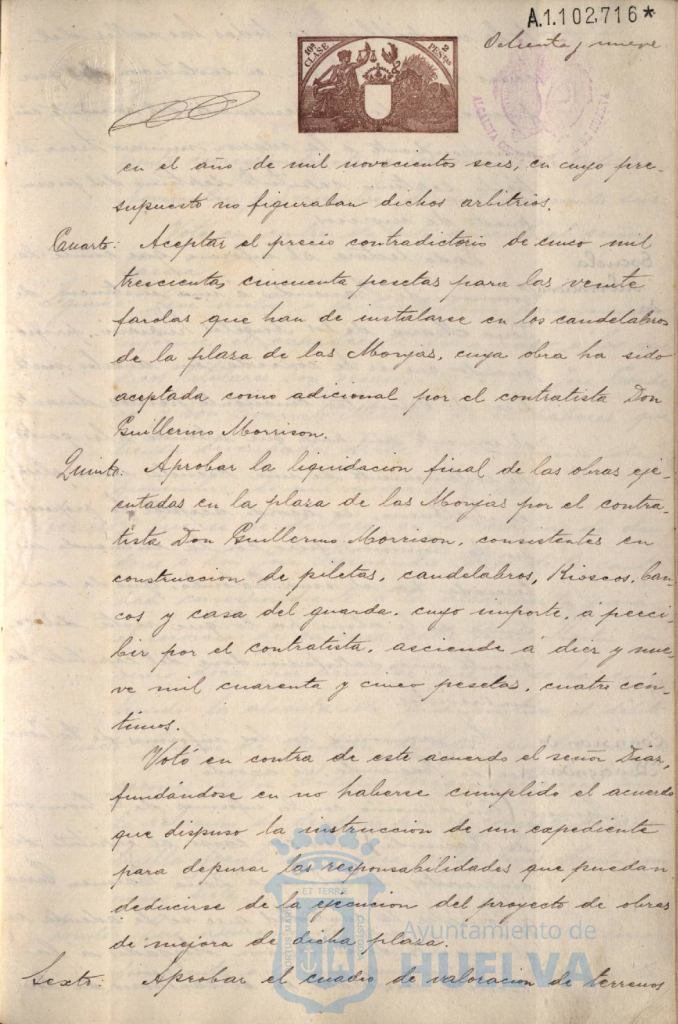 A.1.102,716*
Ochenta y nueve
10ª CLASE
2 PESETAS
ALCALDIA DE HUELVA
en el año de mil novecientos seis, en cuyo pre-
supuesto no figuraban dichos arbitrios.
Cuarto: Aceptar el precio contradictorio de cinco mil
trescientas cincuenta pesetas para las veinte
farolas que han de instalarse en los candelabros
de la plaza de las Monjas, cuya obra ha sido
aceptada como adicional por el contratista Don
Guillermo Morrison.
Quinto: Aprobar la liquidacion final de las obras eje-
cutadas en la plaza de las Monjas por el contra-
tista Don Guillermo Morrison, consistentes en
construccion de piletas, candelabros, Kioscos, ban-
cos y casa del guarda, cuyo importe, á perci-
bir por el contratista, asciende á diez y nue-
ve mil cuarenta y cinco pesetas, cuatro cén-
timos.
Votó en contra de este acuerdo el señor Diaz,
fundándose en no haberse cumplido el acuerdo
que dispuso la instruccion de un expediente
para depurar las responsabilidades que puedan
deducirse de la ejecucion del proyecto de obras
de mejora de dicha plaza.
Sexto: Aprobar el cuadro de valoracion de terrenos
PORTUS MARIS ET TERRE CUSTODIA
Ayuntamiento de
HUELVA